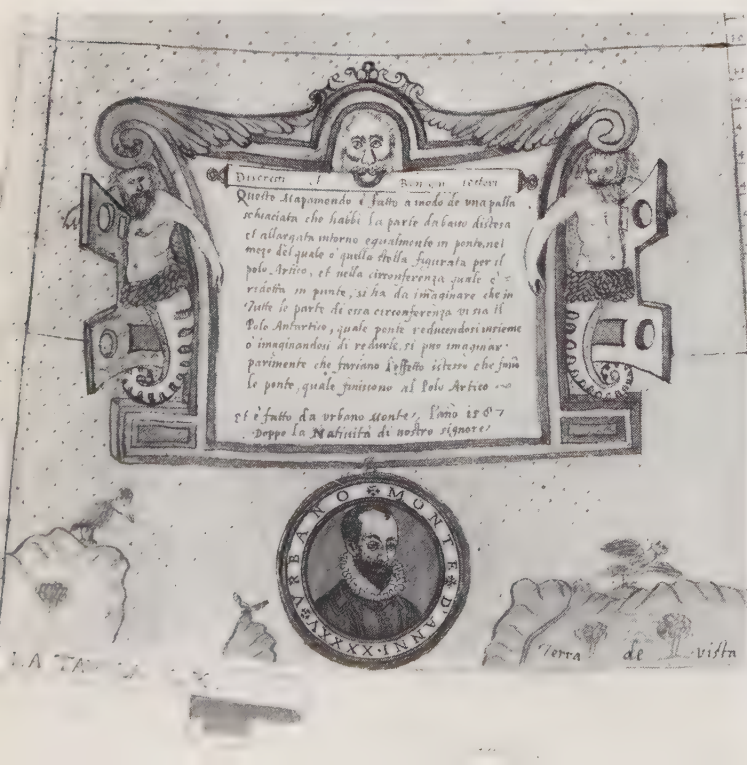 Discreti et Benigni lettori
Questo Mapamondo è fatto a modo de una palla
schiaciata che habbi la parte dabasso distesa
et allargata intorno egualmente in ponte, nel
mezo del quale o quella stella figurata per il
polo Artico, et nella circonferenza quale è
ridotta in punte, si ha da imaginare che in
Tutte le parte di essa circonferenza vi sia il
Polo Antartico, quale ponte reducendosi insieme
o imaginandosi di redurle, si puo imaginar
parimente che fariano l'effetto istesso che fano
le ponte, quale finiscono al Polo Artico
et è fatto da urbano Monte, l'año 1587
Doppo la Natività di nostro signore
VRBANO MONTE D'ANNI XXXXV
Terra de vista